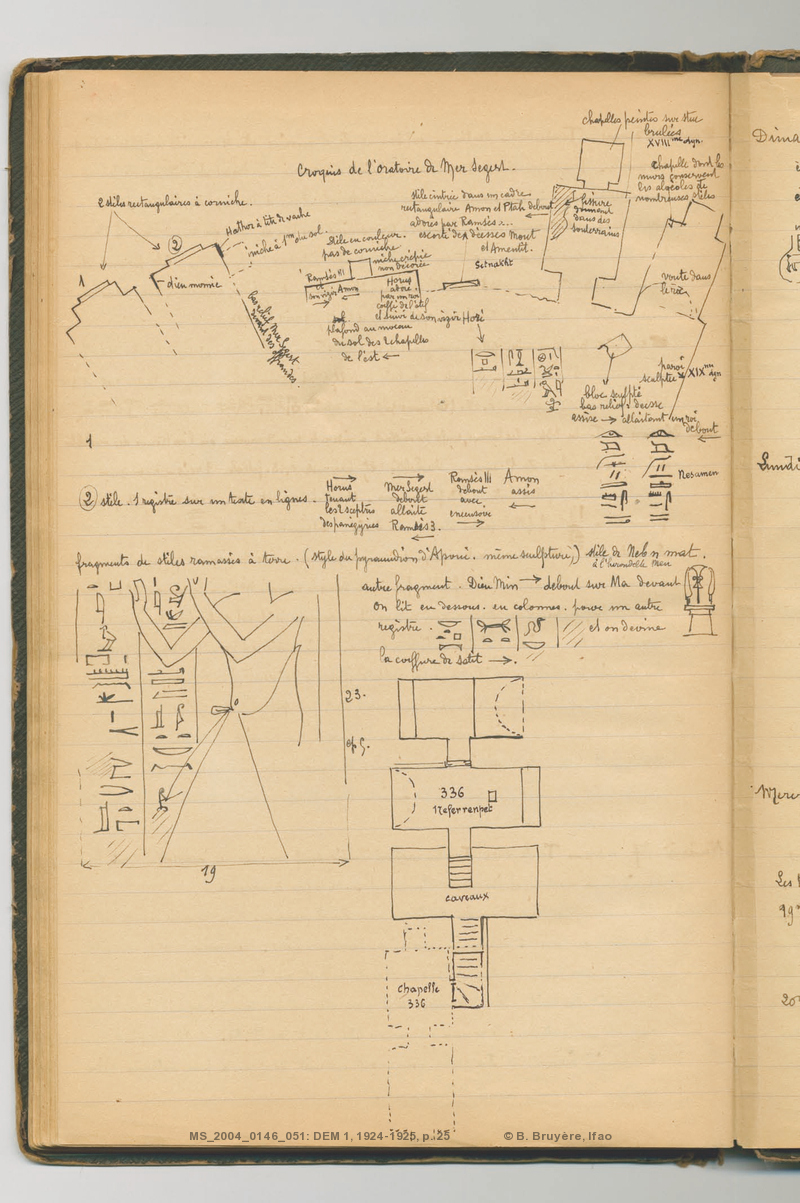 chapelles peintes sur stuc
brulées
XVIII me dyn.
Croquis de l'oratoire de Mer Segert.
chapelle dont les
murs conservent
les alvéoles de
nombreuses stèles
2 stèles rectangulaires à corniche.
stèle cintrée dans un cadre
rectangulaire Amon et Ptah debout
adorés par Ramsès
escorte de 2 déesses Mout
et Amentit.
Setnakht
fissure
donnant
dans des
souterrains
Hathor à tête de vache
niche à 1m du sol.
stèle en couleur.
pas de corniche
niche crépie
non décorée
1
2
dieu momie
Ramsès III
et
son vizir Amon
Horus
adoré
par un roi
coiffé de l'atef
et suivi de son vizir Hori
plafond au niveau
du sol des 2 chapelles
de l'est
voute dans
le roc
paroi
sculptée XIX me dyn
bloc sculpté
bas relief : déesse
assise → allaitant un roi
debout
Nesamen
1
2 stèle. 1 registre sur un texte en lignes.
Horus
tenant
les 2 sceptres
des panégyries
Mer Segert
debout
allaite
Ramsès 3.
Ramsès III
debout
avec
encensoir
Amon
assis
fragments de stèles ramassés à terre. (style du pyramidion d'Apoui. même sculpture,) stèle de Neb n mat.
à l'hirondelle Men
autre fragment. Dieu Min → debout sur Ma devant
On lit en dessous. en colonnes. pour un autre
registre.
et on devine
la coiffure de Satit →.
23.
ep 5.
19
336
Neferrenpet
caveaux
chapelle
336
MS_2004_0146_051: DEM 1, 1924-1925, p. 25
© B. Bruyère, Ifao
Dima
Lundi
Merc
Les
19
20